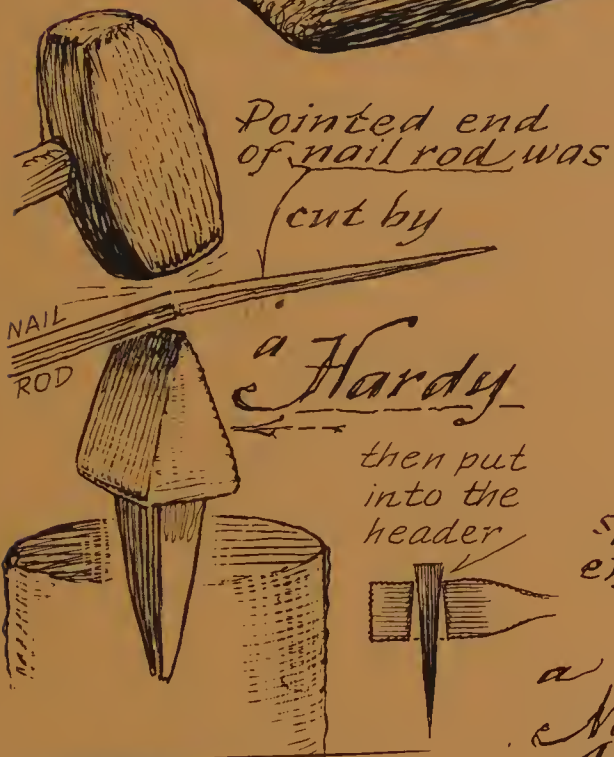 Pointed end
of nail rod was
cut by
NAIL
ROD
a Hardy
then put
into the
header
a